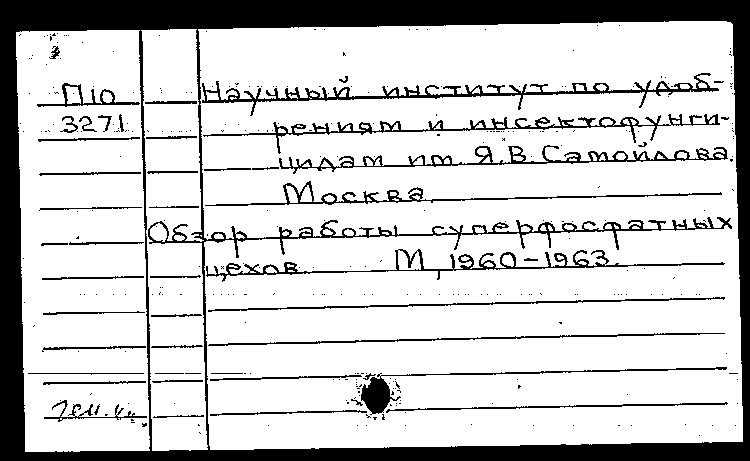 П10 Научный институт по удоб-
3271 рениям и инсектофунги-
цидам им. Я.В. Самойлова.
Москва.
Обзор работы суперфосфатных
цехов. М, 1960-1963.